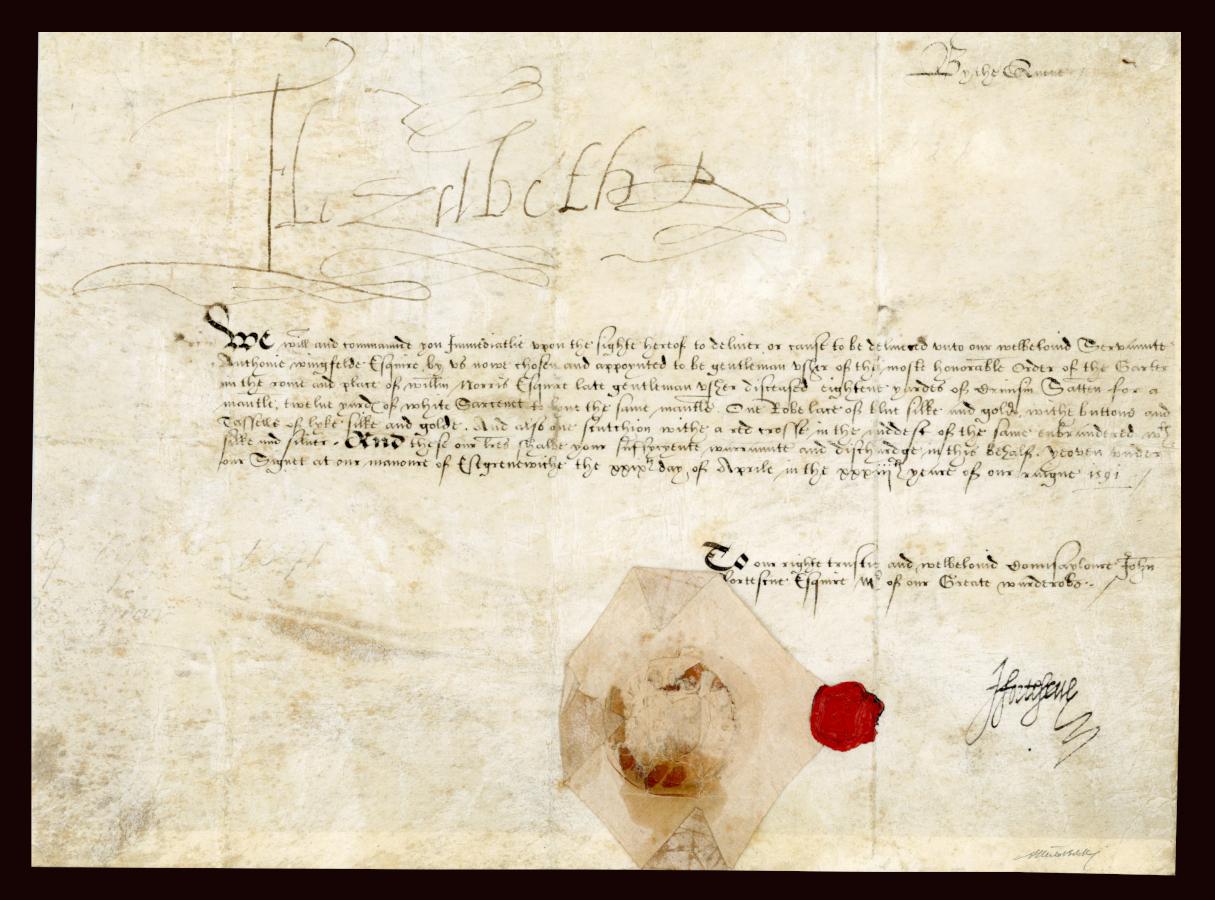 By the Quene
Elizabeth R
We will and commaunde you Immediatlie upon the sighte hereof to deliver or cause to be delivered unto our welbelovid Servaunte
Anthonie wingfelde Esquire, by us nowe chosen and appoynted to be gentleman Usher of the moste honorable Order of the Garter
in the rome and place of willm Norris Esquire late gentleman Usher disceased eightene yardes of Crimsin Satten for a
mantle, twelve yard of white Sarcenet to lyne the same mantle. One Robe lace of blue silke and golde, withe buttons and
Tasselle of lyke silke and golde. And also one scutchion withe a red crosse in the middest of the same enbraudered wth
silke and silver. And these our lres shalbe your sufficyente warraunte and dischardge in this behalf. yeoven under
our Signet at our manoure of Estgrenewiche the xxixth day of Aprile in the xxxiijth yeare of our raigne 1591
To our right trustie and welbelovid Counsayloure John
fortescue Esquire Mr of our Greate warderobe.
Jfortescue